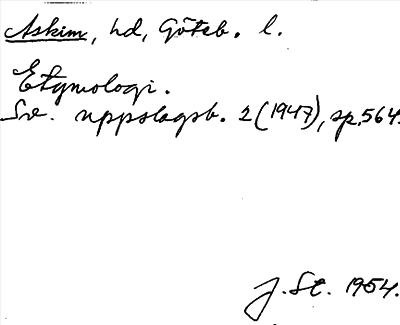 Askim, hd, Göteb. l.
Etymologi.
Sv. uppslagsb. 2 (1947), sp. 564.
J. St. 1954.